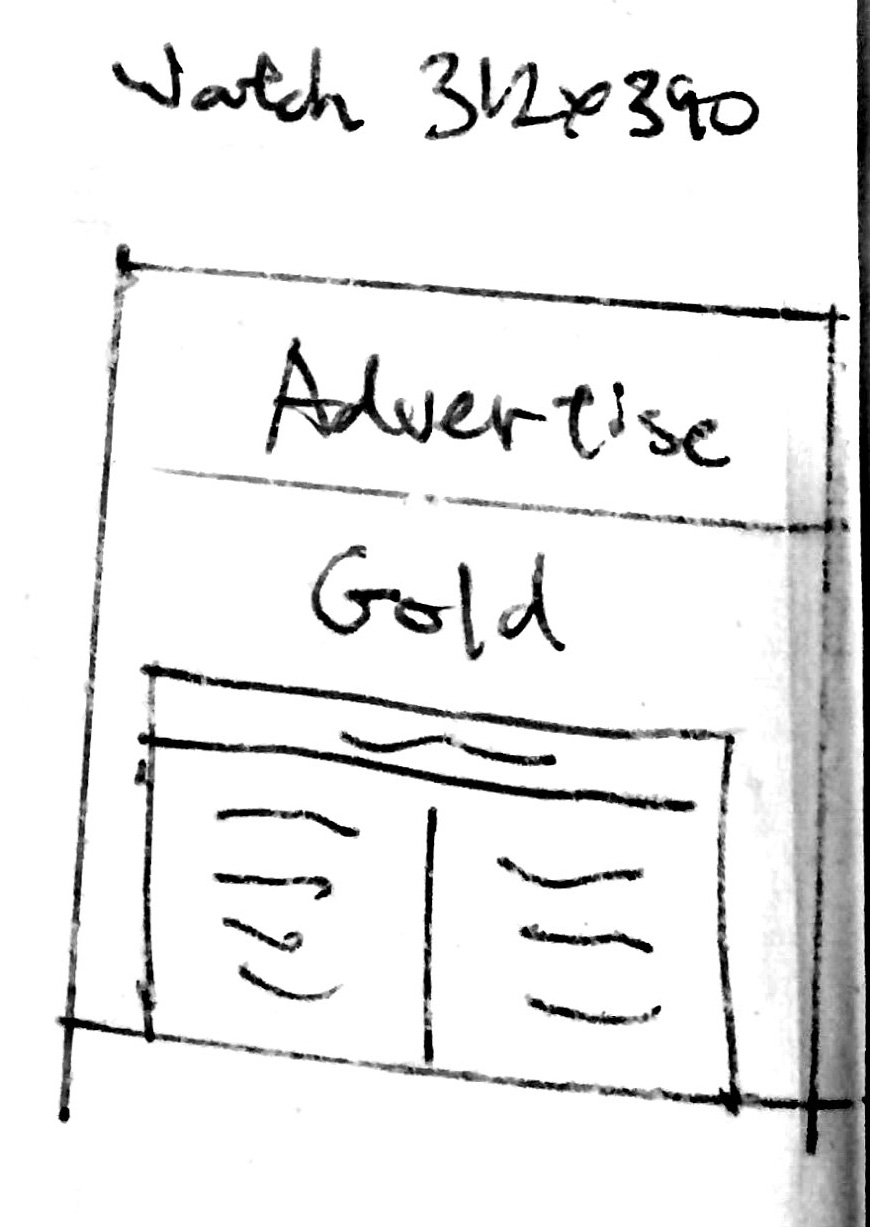 Watch 312x390
Advertise
Gold